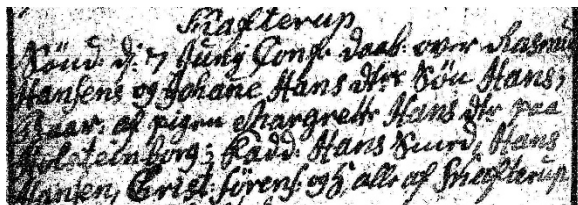 Skafterup
Sönd: d: 7 Junÿ Conf: daab: over Rasmus
Hansens og Johane Hans dtrs Sön Hans;
Baar: af pigen Margrethe Hans dtr paa
Holsteinborg; Fadd: Hans Smed, Hans
Hansen, Christ: Sörens: og H: alle af Skafterup